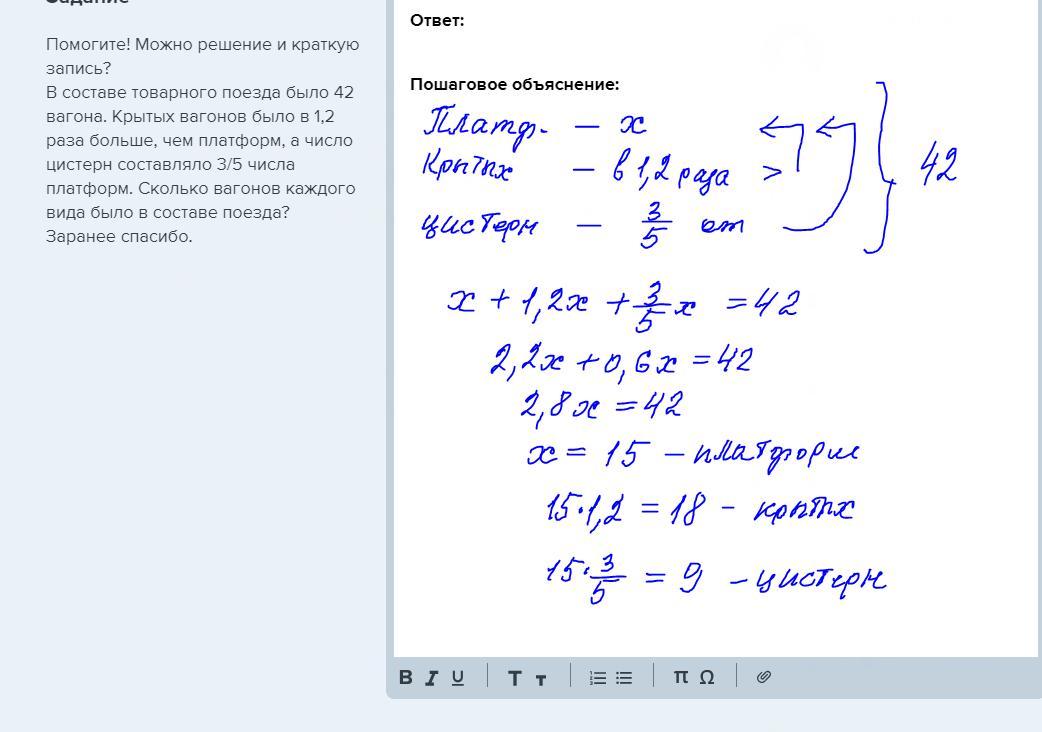 Задание
Помогите! Можно решение и краткую
запись?
В составе товарного поезда было 42
вагона. Крытых вагонов было в 1,2
раза больше, чем платформ, а число
цистерн составляло 3/5 числа
платформ. Сколько вагонов каждого
вида было в составе поезда?
Заранее спасибо.
Ответ:
Пошаговое объяснение:
Платф. — x
Крытых — в 1,2 раза >
42
цистерн — 3/5 от
x + 1,2x + 3/5 x = 42
2,2x + 0,6x = 42
2,8x = 42
x = 15 — платформ
15·1,2 = 18 - крытых
15· 3/5 = 9 — цистерн
B I U T т π Ω